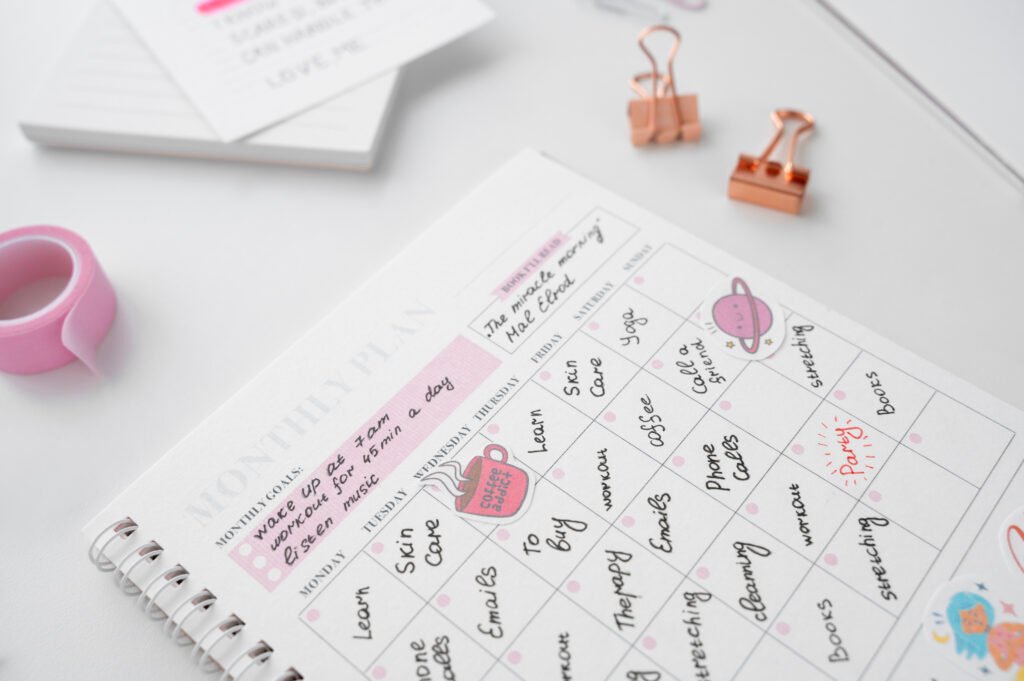 CAN HANDLE
LOVE, ME
MONTHLY PLAN
MONTHLY GOALS:
wake up at 7am
workout for 45min a day
listen music
BOOK I'LL READ
„The miracle morning"
Mal Elrod
MONDAY TUESDAY WEDNESDAY THURSDAY FRIDAY SATURDAY SUNDAY
Learn
Skin
Care
coffee
addict
Learn
Skin
Care
Yoga
hone
alls
Emails
To
Buy
workout
coffee
Call a
friend
orkout
Therapy
Emails
Phone
Calls
stretching
stretching
cleaning
workout
Party
Books
Books
stretching